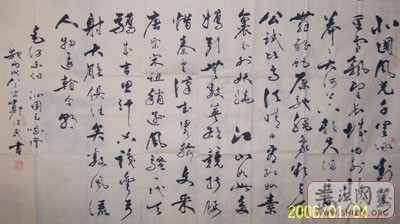 北国风光千里冰封万
里雪飘望长城内外惟余
莽莽大河上下顿失滔滔山
舞银蛇原驰蜡象欲与天
公试比高须晴日看红装素
裹分外妖娆江山如此多
娇引无数英雄竞折腰
惜秦皇汉武略输文采
唐宗宋祖稍逊风骚一代天
骄成吉思汗只识弯弓
射大雕俱往矣数风流
人物还看今朝
毛泽东词沁园春雪
书
书法网
2006/01/04